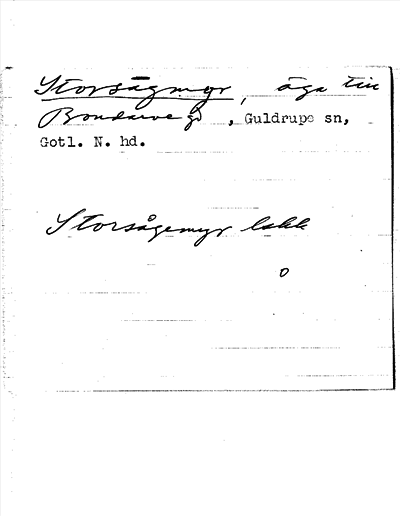 Storsågmyr, äga till
Bondarve gd, Guldrupe sn,
Gotl. N. hd.
Storsågemyr
0